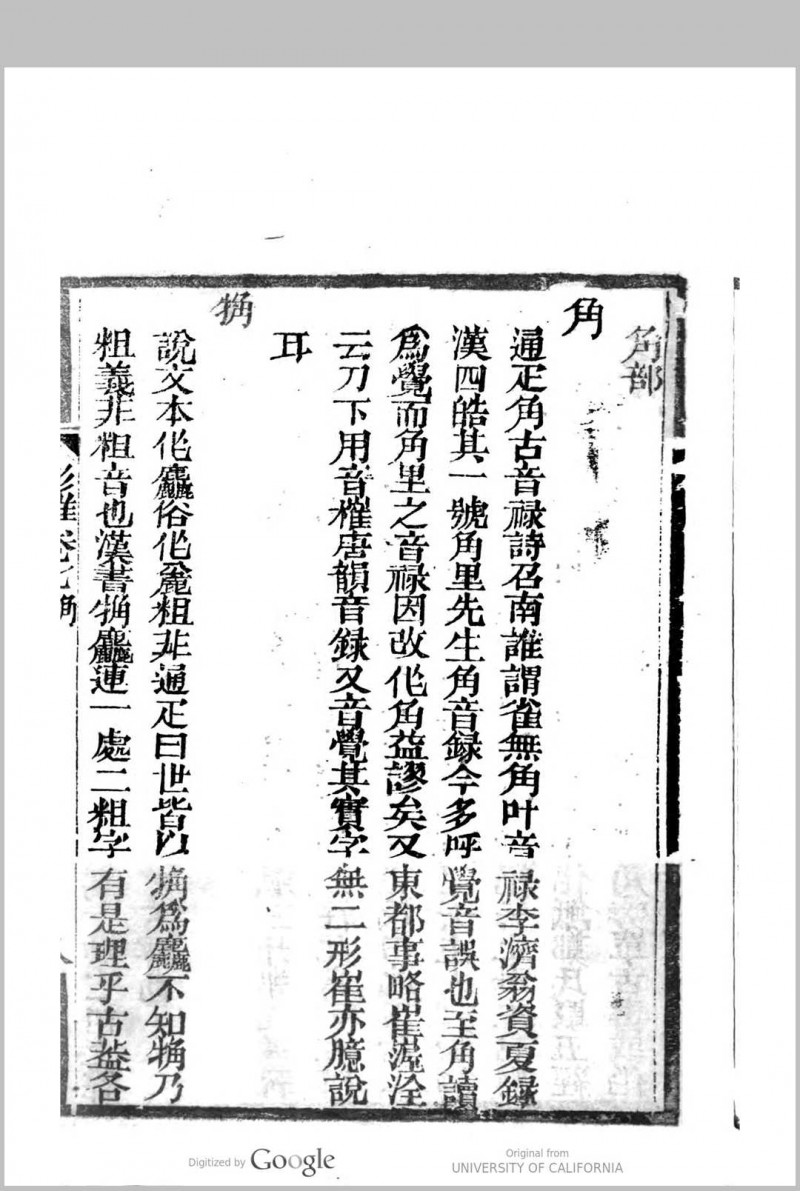 角部
角
通疋角古音祿詩召南誰謂雀無角叶音祿李濟翁資夏錄
漢四皓其一號角里先生角音錄今多呼覺音誤也至角讀
爲覺而角里之音祿因改作角益謬矣又東都事略崔偓佺
云刀下用音榷唐韻音録又音覺其實字無二形崔亦臆說
耳
觕
說文本作麤俗作麄粗非通疋曰世皆以觕爲麤不知觕乃
粗義非粗音也漢書觕麤連一處二粗字有是理乎古葢各
彡雅卷七角
Digitized by Google
Original from
UNIVERSITY OF CALIFORNIA